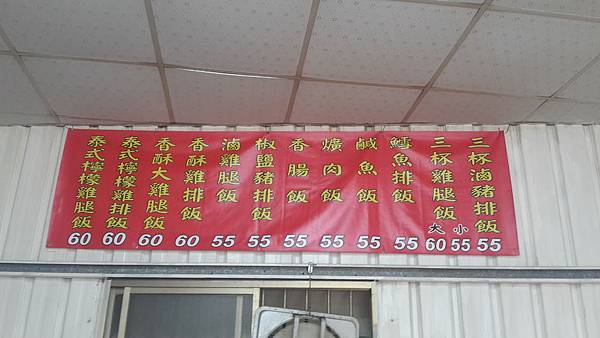 三杯滷豬排飯 55
三杯雞腿飯 大 60 小 55
鱈魚排飯 55
鹹魚飯 55
爌肉飯 55
香腸飯 55
椒鹽豬排飯 55
滷雞腿飯 55
香酥雞排飯 60
香酥大雞腿飯 60
泰式檸檬雞排飯 60
泰式檸檬雞腿飯 60